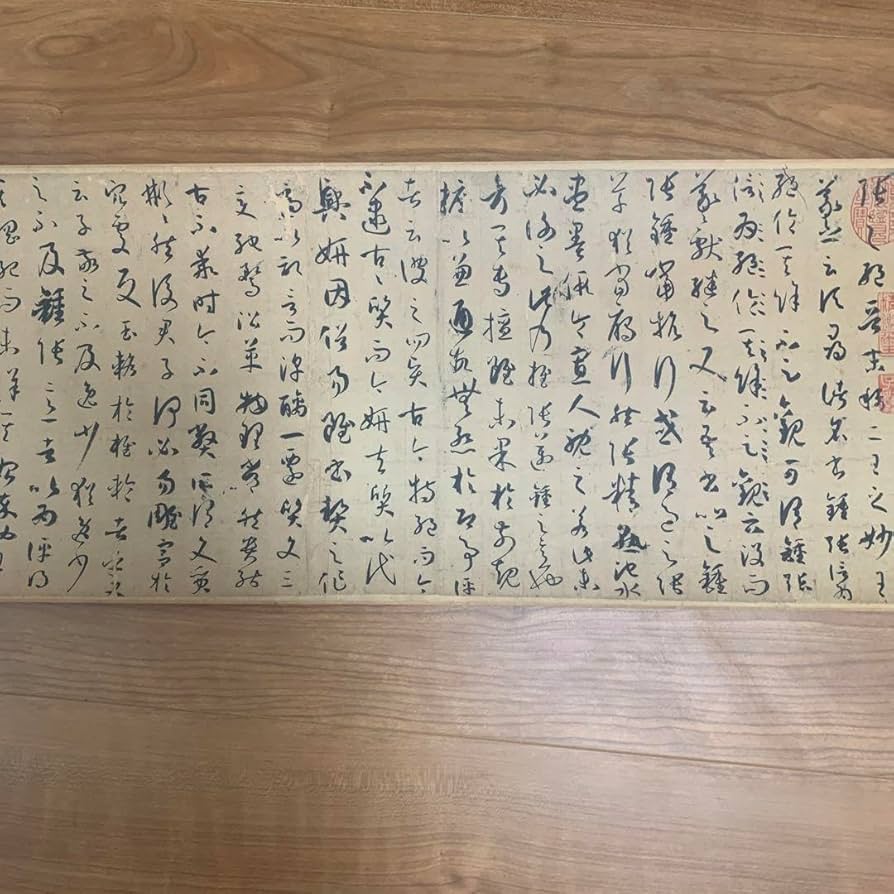 張之絕晉末稱二王之妙王
羲之云頃尋諸名書鍾張信為
絕倫其餘不足觀可謂鍾張
信為絕倫其餘不足觀云沒而
羲獻繼之又云吾書比之鍾
張鍾當抗行或謂過之張
草猶當雁行然張精熟池水
盡墨假令寡人耽之若此未
必謝之此乃推張邁鍾之意也
考其專擅雖未果於前規
摭以兼通故無慚於即事評
者云彼之四賢古今特絕而今
不逮古古質而今妍夫質以代
興妍因俗易雖書契之作
適以記言而淳醨一遷質文三
變馳騖沿革物理常然貴能
古不乖時今不同弊所謂文質
彬彬然後君子何必易雕宮於
穴處反玉輅於椎輪者乎又
云子敬之不及逸少猶逸少
之不及鍾張意者以為評得
其綱紀而未詳其始卒也